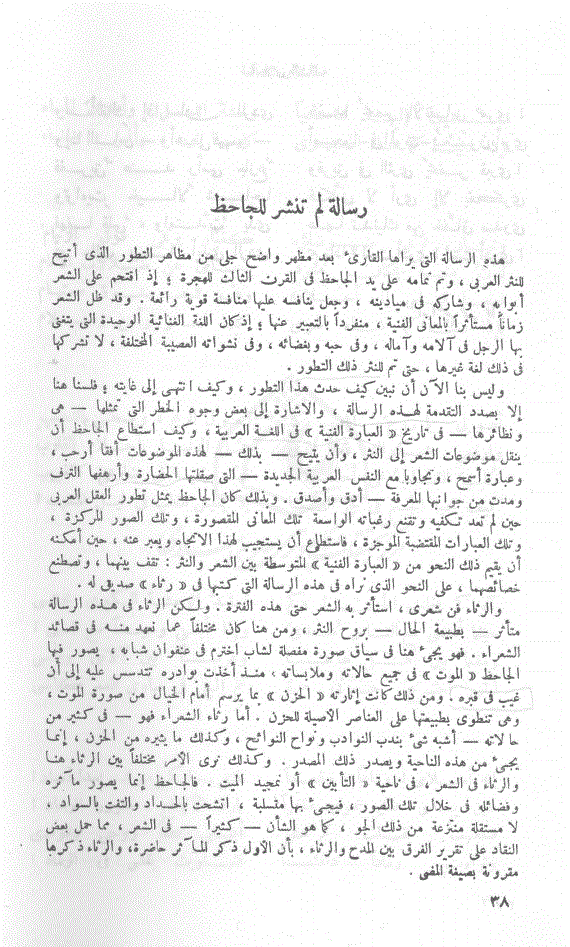 رسالة لم تنشر للجاحظ
هذه الرسالة التى يراها القارىء بعد مظهر واضح جلى من مظاهر التطور الذى أتيح
للنثر العربى ، وتم تمامه على يد الجاحظ فى القرن الثالث للهجرة ؛ إذ اقتحم على الشعر
أبوابه ، وشاركه فى ميادينه ، وجعل ينافسه عليها منافسة قوية رائعة . وقد ظل الشعر
زماناً مستأثراً بالمعانى الفنية ، منفرداً بالتعبير عنها ؛ إذ كان اللغة الغنائية الوحيدة التى يتغنى
بها الرجل فى آلامه وآماله ، وفى حبه وبغضائه ، وفى نشواته العصيبة المختلفة ، لا تشركها
فى ذلك لغة غيرها ، حتى تم للنثر ذلك التطور .
وليس بنا الآن أن نبين كيف حدث هذا التطور ، وكيف انتهى إلى غايته ؛ فلسنا هنا
إلا بصدد التقدمة لهذه الرسالة ، والاشارة إلى بعض وجوه الخطر التى تمثلها — هى
ونظائرها — فى تاريخ « العبارة الفنية » فى اللغة العربية ، وكيف استطاع الجاحظ أن
ينقل موضوعات الشعر إلى النثر ، وأن يتيح — بذلك — لهذه الموضوعات أفقا أرحب ،
وعبارة أسمح ، وتجاوبا مع النفس العربية الجديدة — التى صقلتها الحضارة وأرهفها الترف
ومدت من جوانبها المعرفة — أدق وأصدق . وبذلك كان الجاحظ يمثل تطور العقل العربى
حين لم تعد تكفيه وتقنع رغباته الواسعة تلك المعانى المقصورة ، وتلك الصور المركزة ،
وتلك العبارات المقتضبة الموجزة ، فاستطاع أن يستجيب لهذا الاتجاه ويعبر عنه ، حين أمكنه
أن يقيم ذلك النحو من « العبارة الفنية » المتوسطة بين الشعر والنثر : تقف بينهما ، وتصطنع
خصائصهما ، على النحو الذى نراه فى هذه الرسالة التى كتبها فى « رثاء » صديق له .
والرثاء فن شعرى ، استأثر به الشعر حتى هذه الفترة . ولكن الرثاء فى هذه الرسالة
متأثر — بطبيعة الحال — بروح النثر ، ومن هنا كان مختلفاً عما نعهد منه فى قصائد
الشعراء . فهو يجىء هنا فى سياق صورة مفصلة لشاب اخترم فى عنفوان شبابه ، يصور فيها
الجاحظ « الموت » فى جميع حالاته وملابساته ، منذ أخذت بوادره تتدسس عليه إلى أن
غيب فى قبره . ومن ذلك كانت إثارته « الحزن » بما يرسم أمام الخيال من صورة الموت ،
وهى تنطوى بطبيعتها على العناصر الاصيلة للحزن . أما رثاء الشعراء فهو — فى كثير من
حالاته — أشبه شىء بندب النوادب ونواح النوائح ، وكذلك ما يثيره من الحزن ، إنما
يجىء من هذه الناحية ويصدر ذلك المصدر . وكذلك نرى الامر مختلفاً بين الرثاء هنا
والرثاء فى الشعر ، فى ناحية « التأبين » أو تمجيد الميت . فالجاحظ إنما يصور مآثره
وفضائله فى خلال تلك الصور ، فيجىء بها متسلبة ، اتشحت بالحداد والتفت بالسواد .
لا مستقلة منتزعة من ذلك الجو ، كما هو الشأن — كثيراً — فى الشعر ، مما حمل بعض
النقاد على تقرير الفرق بين المدح والرثاء ، بأن الاول ذكر المآثر حاضرة، والرثاء ذكرها
مقرونة بصيغة المضى .
٣٨